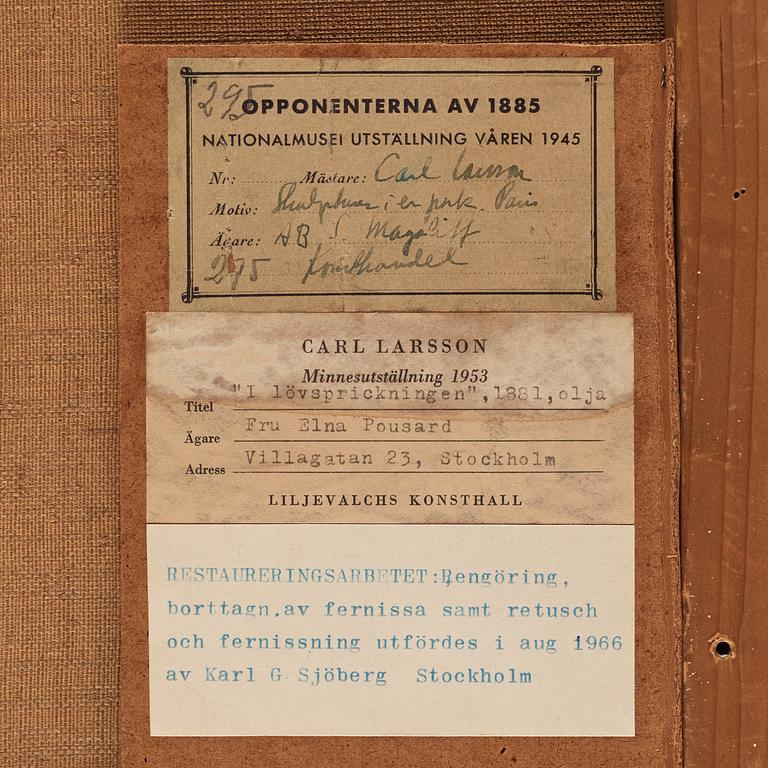 295
OPPONENTERNA AV 1885
NATIONALMUSEI UTSTÄLLNING VÅREN 1945
Nr: Mästare: Carl Larsson
Motiv: Skulpturer i en park. Paris
Ägare: AB
275 Konsthandel
CARL LARSSON
Minnesutställning 1953
Titel "I lövsprickningen",1881,olja
Ägare Fru Elna Pousard
Adress Villagatan 23, Stockholm
LILJEVALCHS KONSTHALL
RESTAURERINGSARBETET:Rengöring,
borttagn.av fernissa samt retusch
och fernissning utfördes i aug 1966
av Karl G Sjöberg Stockholm